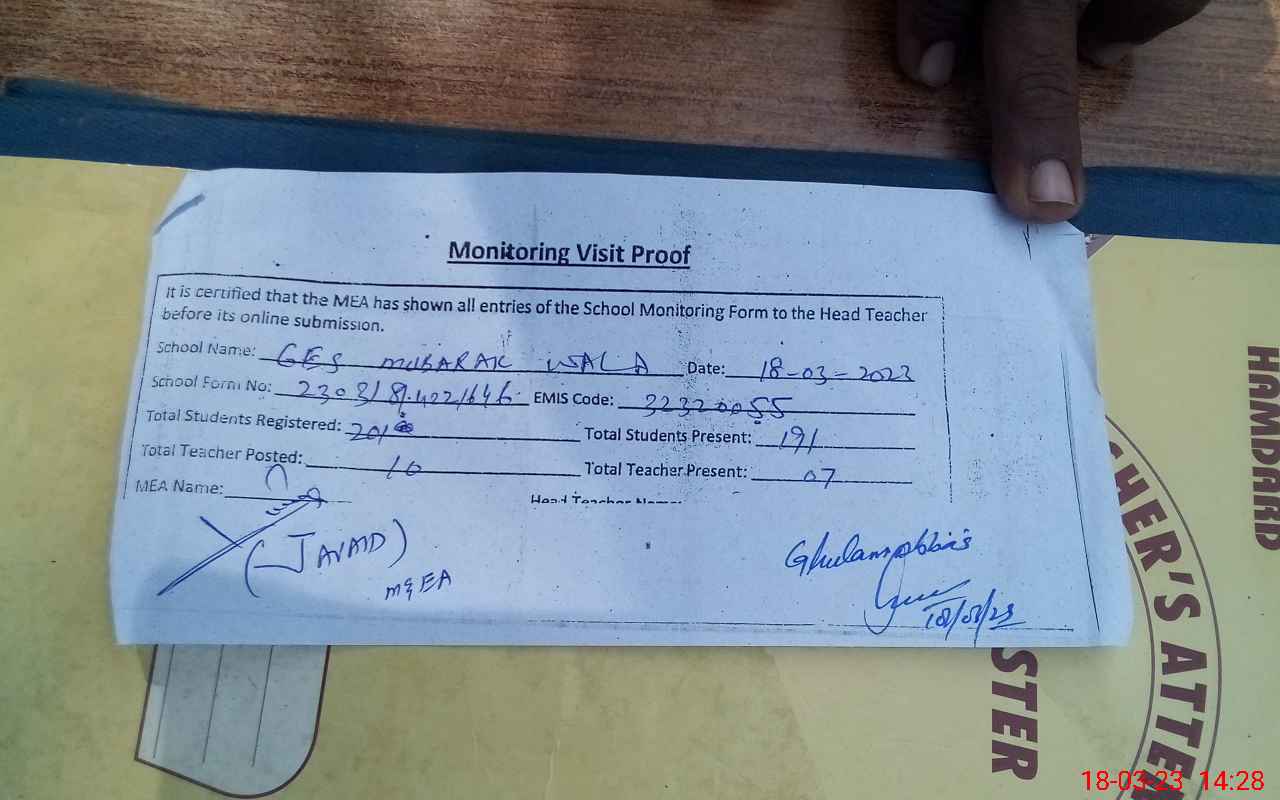 Monitoring Visit Proof
It is certified that the MEA has shown all entries of the School Monitoring Form to the Head Teacher
before its online submission.
School Name: GES MUBARAK WALA Date: 18-03-2023
School Form No: EMIS Code: 32320055
Total Students Registered: 201 Total Students Present: 191
Total Teacher Posted: 10 Total Teacher Present: 07
MEA Name: Head Teacher Name:
(JAVAID)
M&EA
Ghulam Abbas
18/03/23
HAMDARD
CHER'S ATTEN
STER
18-03-23 14:28